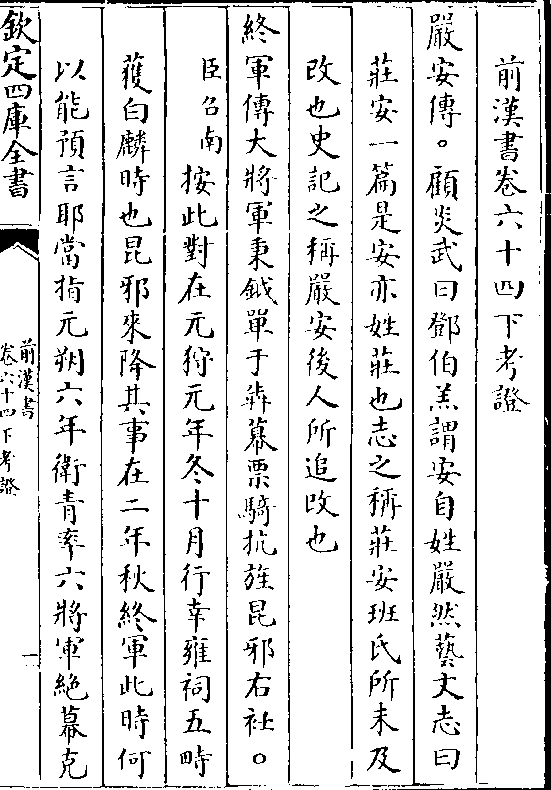 前漢書卷六十四下考證
嚴安傳。顧炎武曰鄧伯羔謂安自姓嚴然藝文志曰
莊安一篇是安亦姓莊也志之稱莊安班氏所未及
改也史記之稱嚴安後人所追改也
終軍傳大將軍秉鉞單于犇幕票騎抗旌昆邪右衽。
臣召南按此對在元狩元年冬十月行幸雍祠五畤
獲白麟時也昆邪來降其事在二年秋終軍此時何
以能預言耶當指元朔六年衛青率六將軍絶幕克
欽定四庫全書
前漢書
卷六十四下考證
一